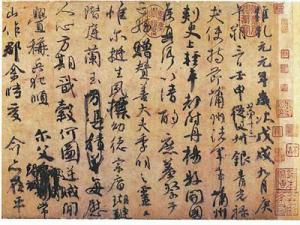 維乾元元年歲次戊戌九月庚
午朔三日壬申第十三叔銀青光祿
夫使持節蒲州諸軍事蒲州
刺史上輕車都尉丹楊縣開國
侯真卿以清酌庶羞祭于
亡姪贈贊善大夫季明之靈
惟爾挺生夙標幼德宗廟瑚璉
階庭蘭玉每慰
人心方期戩穀何圖逆賊間
釁稱兵犯順爾父常
山作郡余時受命亦在平